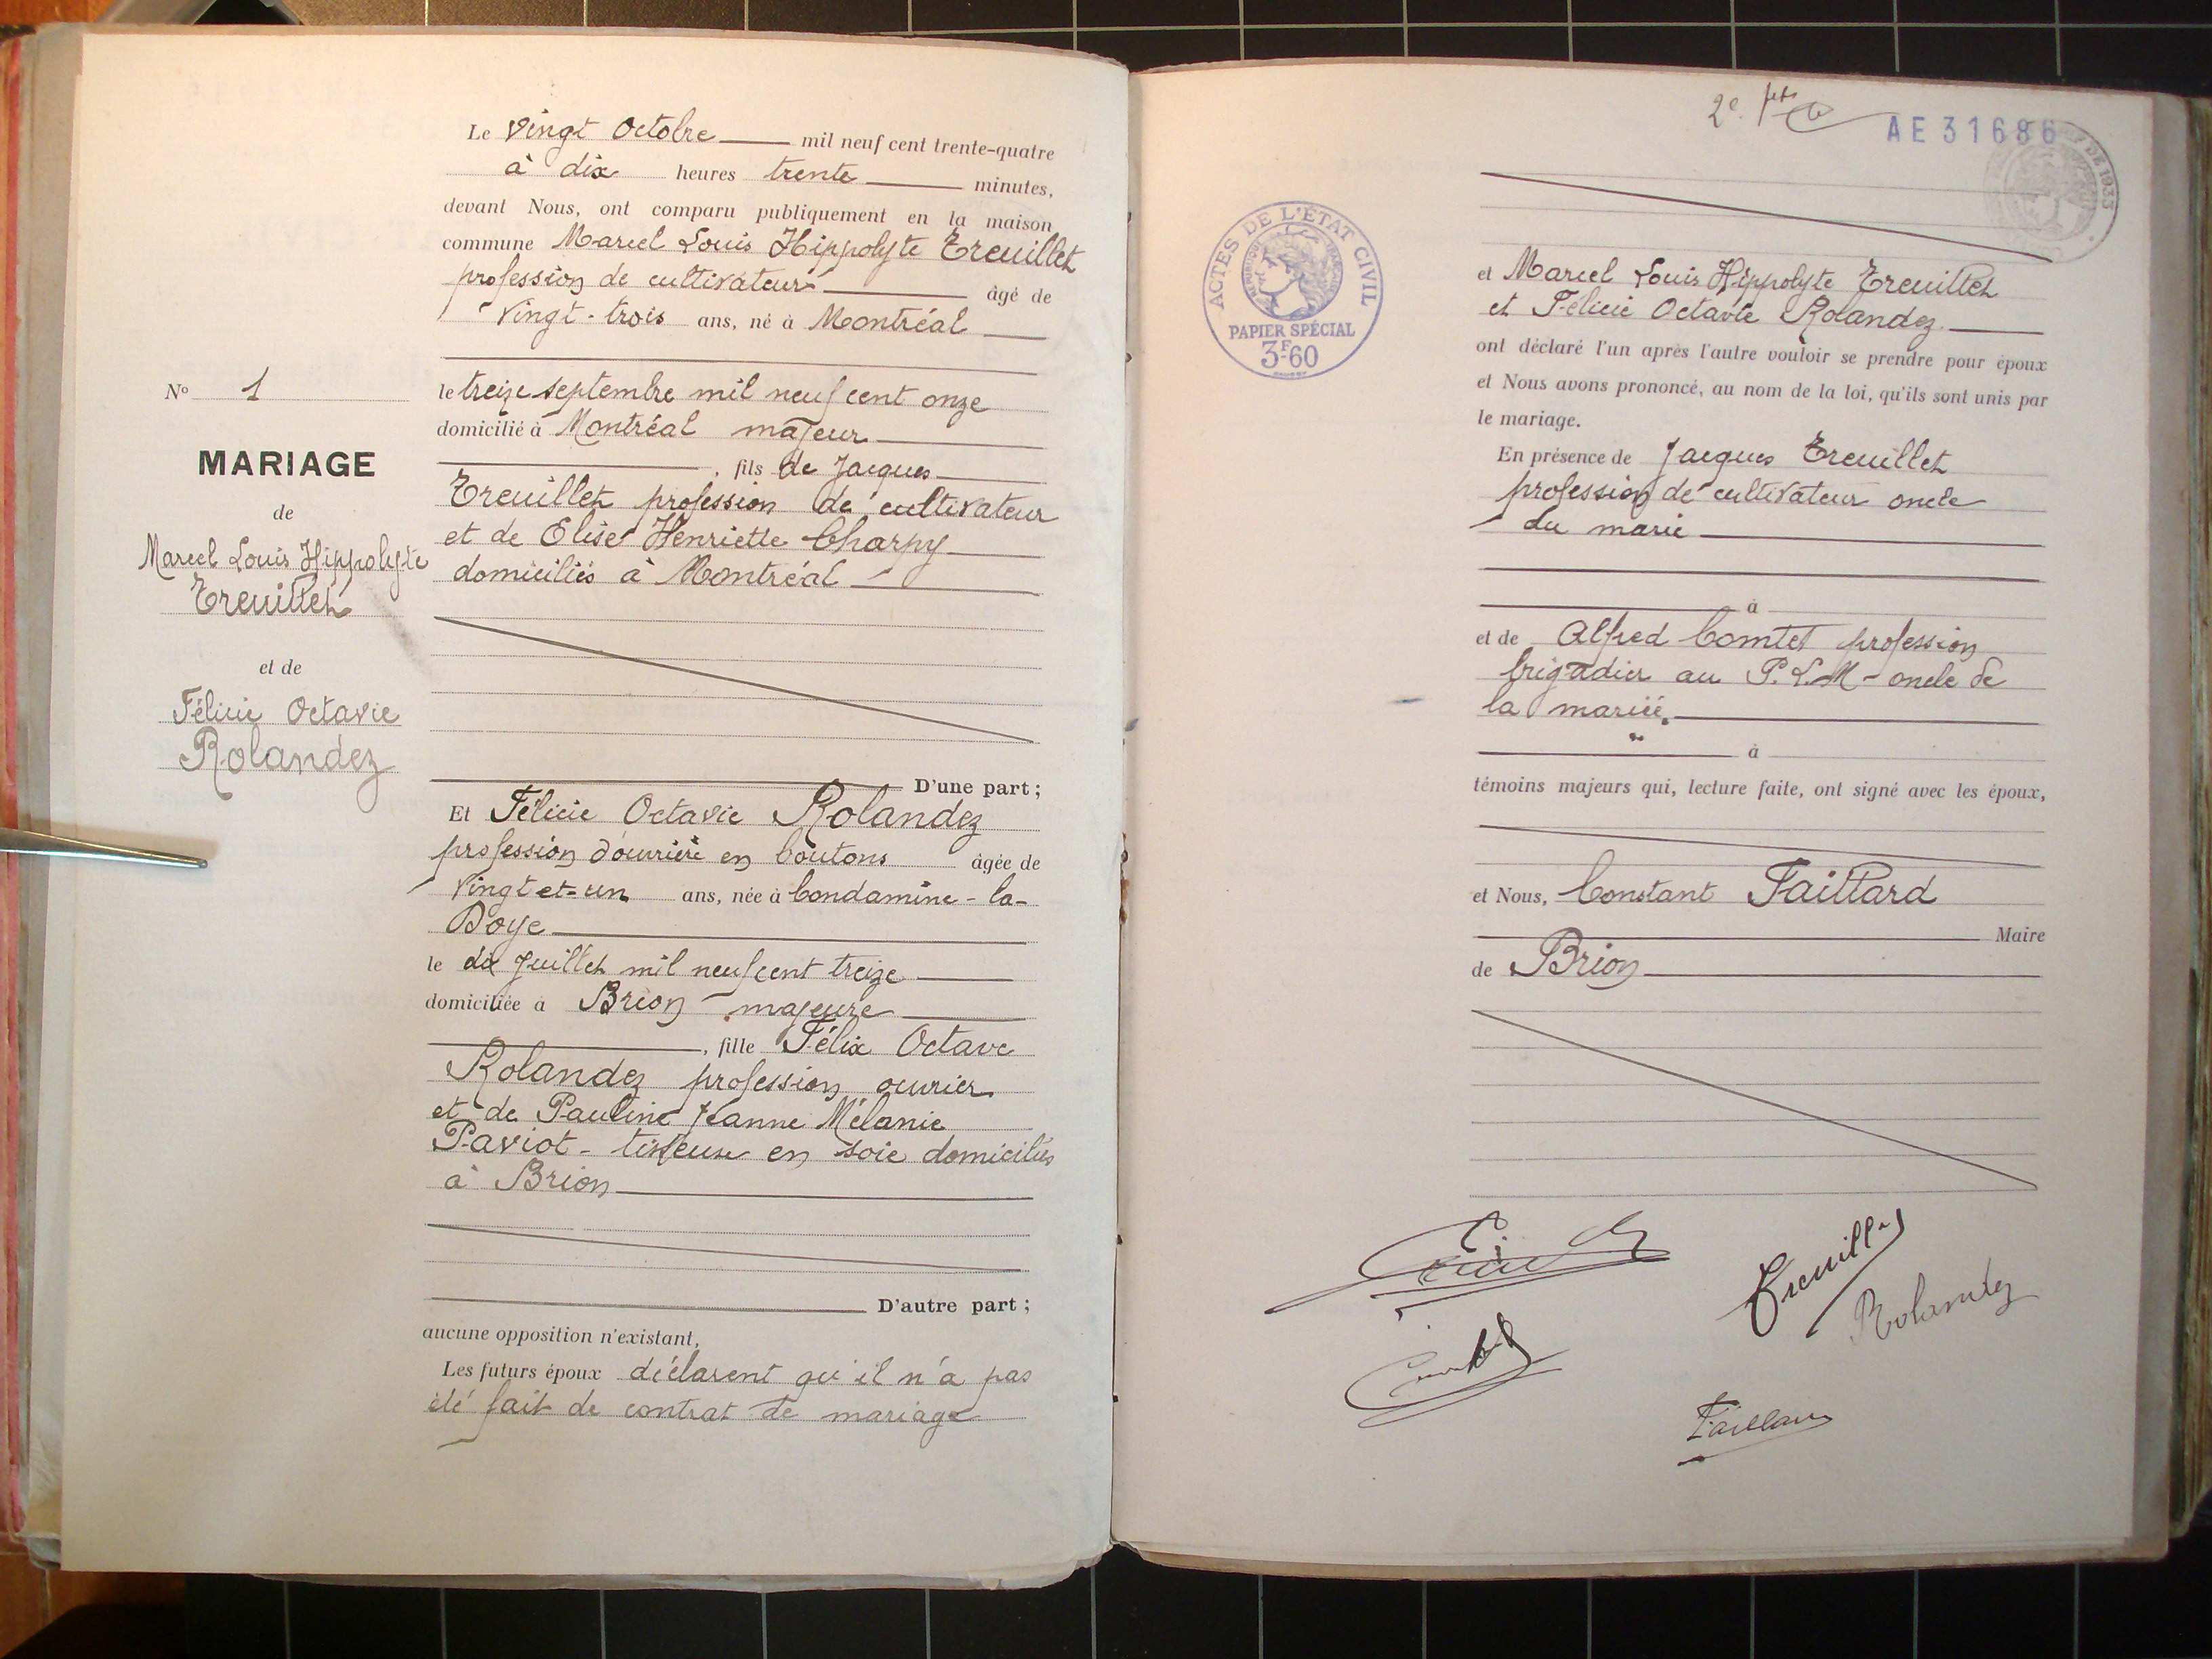 Le vingt Octobre mil neuf cent trente-quatre
à dix heures trente minutes,
devant Nous, ont comparu publiquement en la maison
commune Marcel Louis Hippolyte Treuillet
profession de cultivateur âgé de
vingt-trois ans, né à Montréal
le treize septembre mil neuf cent onze
domicilié à Montréal majeur
, fils de Jacques
Treuillet profession de cultivateur
et de Elise Henriette Charpy
domiciliés à Montréal
N° 1
MARIAGE
de
Marcel Louis Hippolyte
Treuillet
et de
Félicie Octavie
Rolandez
D'une part ;
Et Félicie Octavie Rolandez
profession d'ouvrière en boutons âgée de
vingt et-un ans, née à Condamine-la-
Doye
le dix juillet mil neuf cent treize
domiciliée à Brion majeure
, fille Félix Octave
Rolandez profession ouvrier
et de Pauline Jeanne Mélanie
Paviot - tisseuse en soie domiciliés
à Brion
D'autre part ;
aucune opposition n'existant,
Les futurs époux déclarent qu'il n'a pas
été fait de contrat de mariage
2e
AE 31686
DE 1933
ACTES DE L'ÉTAT CIVIL
PAPIER SPÉCIAL
3F60
et Marcel Louis Hippolyte Treuillet
et Félicie Octavie Rolandez
ont déclaré l'un après l'autre vouloir se prendre pour époux
et Nous avons prononcé, au nom de la loi, qu'ils sont unis par
le mariage.
En présence de Jacques Treuillet
profession de cultivateur oncle
du marié
à
et de Alfred Comtet profession
brigadier au P.L.M - oncle de
la mariée.
à
témoins majeurs qui, lecture faite, ont signé avec les époux,
et Nous, Constant Taillard
Maire
de Brion
Treuillet
Rolandez
Taillard